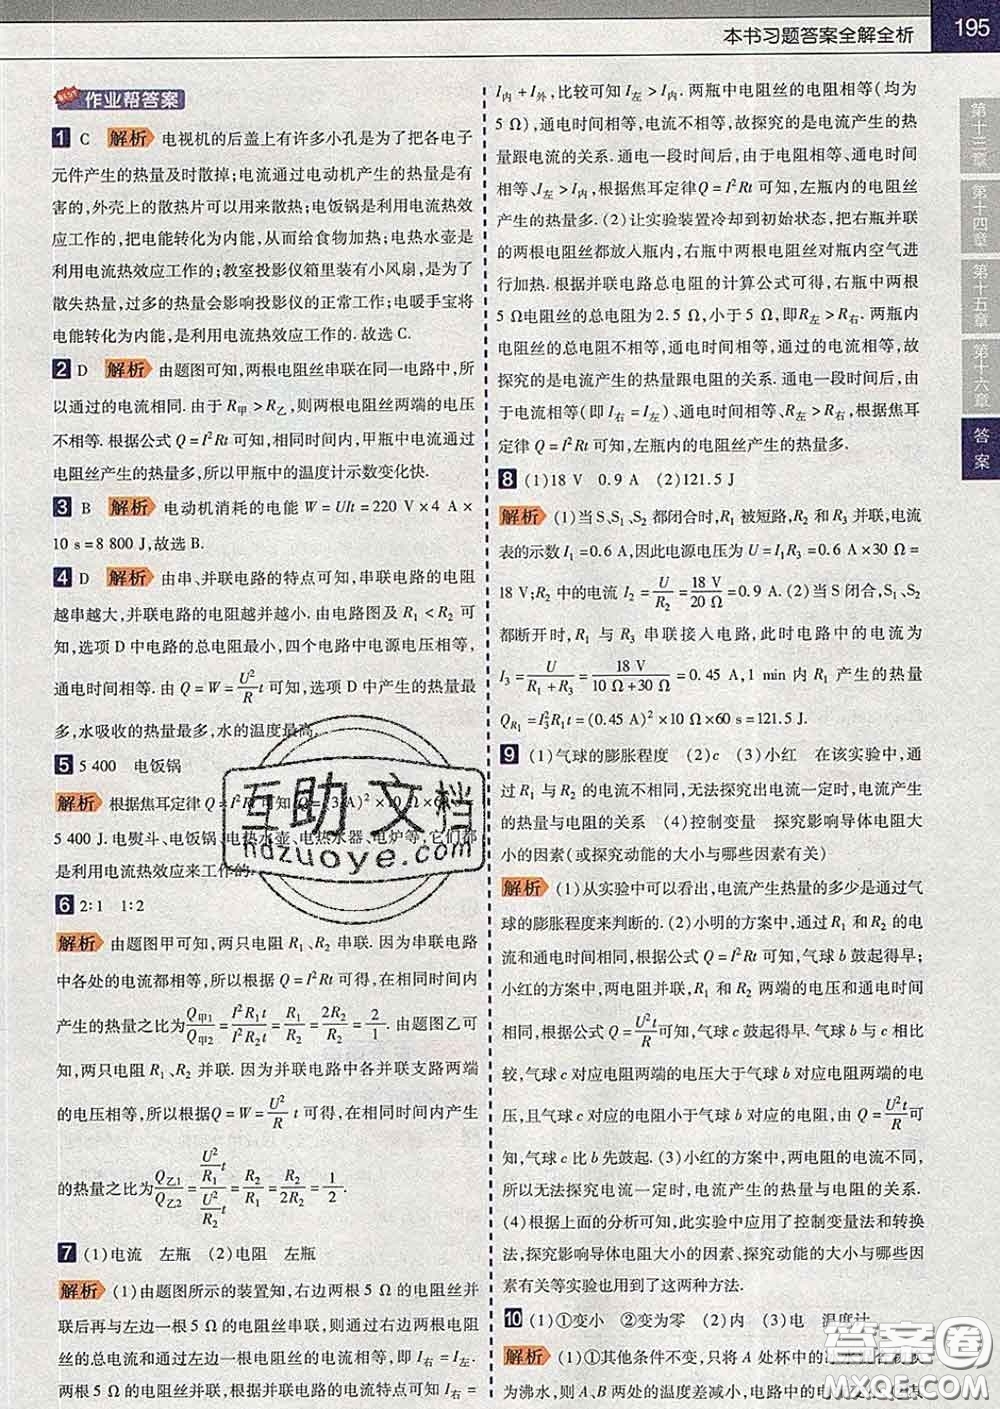 本书习题答案全解全析
195
第十三章
第十四章
第十五章
第十六章
答案
BEST 作业帮答案
1 C 解析 电视机的后盖上有许多小孔是为了把各电子
元件产生的热量及时散掉;电流通过电动机产生的热量是有
害的,外壳上的散热片可以用来散热;电饭锅是利用电流热效
应工作的,把电能转化为内能,从而给食物加热;电热水壶是
利用电流热效应工作的;教室投影仪箱里装有小风扇,是为了
散失热量,过多的热量会影响投影仪的正常工作;电暖手宝将
电能转化为内能,是利用电流热效应工作的.故选 C.
2 D 解析 由题图可知,两根电阻丝串联在同一电路中,所
以通过的电流相同.由于 R甲>R乙,则两根电阻丝两端的电压
不相等.根据公式 Q=I²Rt 可知,相同时间内,甲瓶中电流通过
电阻丝产生的热量多,所以甲瓶中的温度计示数变化快.
3 B 解析 电动机消耗的电能 W=UIt=220 V×4 A×
10 s=8 800 J,故选 B.
4 D 解析 由串、并联电路的特点可知,串联电路的电阻
越串越大,并联电路的电阻越并越小.由电路图及 R₁<R₂ 可
知,选项 D 中电路的总电阻最小,四个电路中电源电压相等,
通电时间相等.由 Q=W=U²/R t 可知,选项 D 中产生的热量最
多,水吸收的热量最多,水的温度最高.
5 5 400 电饭锅
解析 根据焦耳定律 Q=I²Rt 可知 Q=(3 A)²×10 Ω×60 s=
5 400 J.电熨斗、电饭锅、电热水壶、电热水器、电炉等,它们都
是利用电流热效应来工作的.
6 2:1 1:2
解析 由题图甲可知,两只电阻 R₁、R₂ 串联.因为串联电路
中各处的电流都相等,所以根据 Q=I²Rt 可得,在相同时间内
产生的热量之比为 Q甲1/Q甲2=I²R₁t/I²R₂t=R₁/R₂=2R₂/R₂=2/1.由题图乙可
知,两只电阻 R₁、R₂ 并联.由于并联电路中各并联支路两端
的电压相等,所以根据 Q=W=U²/R t 可得,在相同时间内产生
的热量之比为 Q乙1/Q乙2=(U²/R₁ t)/(U²/R₂ t)=R₂/R₁=R₂/2R₂=1/2.
7 (1)电流 左瓶 (2)电阻 左瓶
解析 (1)由题图所示的装置知,右边两根 5 Ω 的电阻丝并
联后再与左边一根 5 Ω 的电阻丝串联,则通过右边两根电阻
丝的总电流与左边一根电阻丝的电流相等,即 I右=I左.右边
两根 5 Ω 的电阻丝并联,根据并联电路的电流特点可知 I右=
I内+I外,比较可知 I左>I内.两瓶中电阻丝的电阻相等(均为
5 Ω),通电时间相等,电流不相等,故探究的是电流产生的热
量跟电流的关系.通电一段时间后,由于电阻相等、通电时间
相等、I左>I内,根据焦耳定律 Q=I²Rt 可知,左瓶内的电阻丝
产生的热量多.(2)让实验装置冷却到初始状态,把右瓶并联
的两根电阻丝都放入瓶内,右瓶中两根电阻丝对瓶内空气进
行加热.根据并联电路总电阻的计算公式可得,右瓶中两根
5 Ω电阻丝的总电阻为 2.5 Ω,小于 5 Ω,即R左>R右.两瓶内
电阻丝的总电阻不相等,通过的电流相等,通电时间相等,故
探究的是电流产生的热量跟电阻的关系.通电一段时间后,由
于电流相等(即 I右=I左)、通电时间相等、R左>R右,根据焦耳
定律 Q=I²Rt 可知,左瓶内的电阻丝产生的热量多.
8 (1)18 V 0.9 A (2)121.5 J
解析 (1)当 S、S₁、S₂ 都闭合时,R₁ 被短路,R₂ 和 R₃ 并联,电流
表的示数 I₁=0.6 A,因此电源电压为 U=I₁R₃=0.6 A×30 Ω=
18 V;R₂ 中的电流 I₂=U/R₂=18 V/20 Ω=0.9 A.(2)当 S 闭合,S₁、S₂
都断开时,R₁ 与 R₃ 串联接入电路,此时电路中的电流为
I₃=U/(R₁+R₃)=18 V/(10 Ω+30 Ω)=0.45 A,1 min 内 R₁ 产生的热量
QR₁=I₃²R₁t=(0.45 A)²×10 Ω×60 s=121.5 J.
9 (1)气球的膨胀程度 (2)c (3)小红 在该实验中,通
过 R₁ 与 R₂ 的电流不相同,无法探究出电流一定时,电流产
生的热量与电阻的关系 (4)控制变量 探究影响导体电阻大
小的因素(或探究动能的大小与哪些因素有关)
解析 (1)从实验中可以看出,电流产生热量的多少是通过气
球的膨胀程度来判断的.(2)小明的方案中,通过 R₁ 和 R₂ 的电
流和通电时间相同,根据公式 Q=I²Rt 可知,气球 b 鼓起得早;
小红的方案中,两电阻并联,R₁ 和 R₂ 两端的电压和通电时间
相同,根据公式 Q=U²t/R可知,气球 c 鼓起得早.气球 b 与 c 相比
较,气球 c 对应电阻两端的电压大于气球 b 对应的电阻两端电
压,且气球 c 对应的电阻小于气球 b 对应的电阻,由 Q=U²t/R可
知,气球 c 比 b 先鼓起.(3)小红的方案中,两电阻的电流不同,
所以无法探究电流一定时,电流产生的热量与电阻的关系.
(4)根据上面的分析可知,此实验中应用了控制变量法和转换
法,探究影响导体电阻大小的因素、探究动能的大小与哪些因
素有关等实验也用到了这两种方法.
10 (1)①变小 ②变为零 (2)内 (3)电 温度计
解析 (1)①其他条件不变,只将 A 处杯中的
为沸水,则 A、B 两处的温度差减小,电路中的电
互助文档
hdzuoye.com
答案圈
MXQE.COM